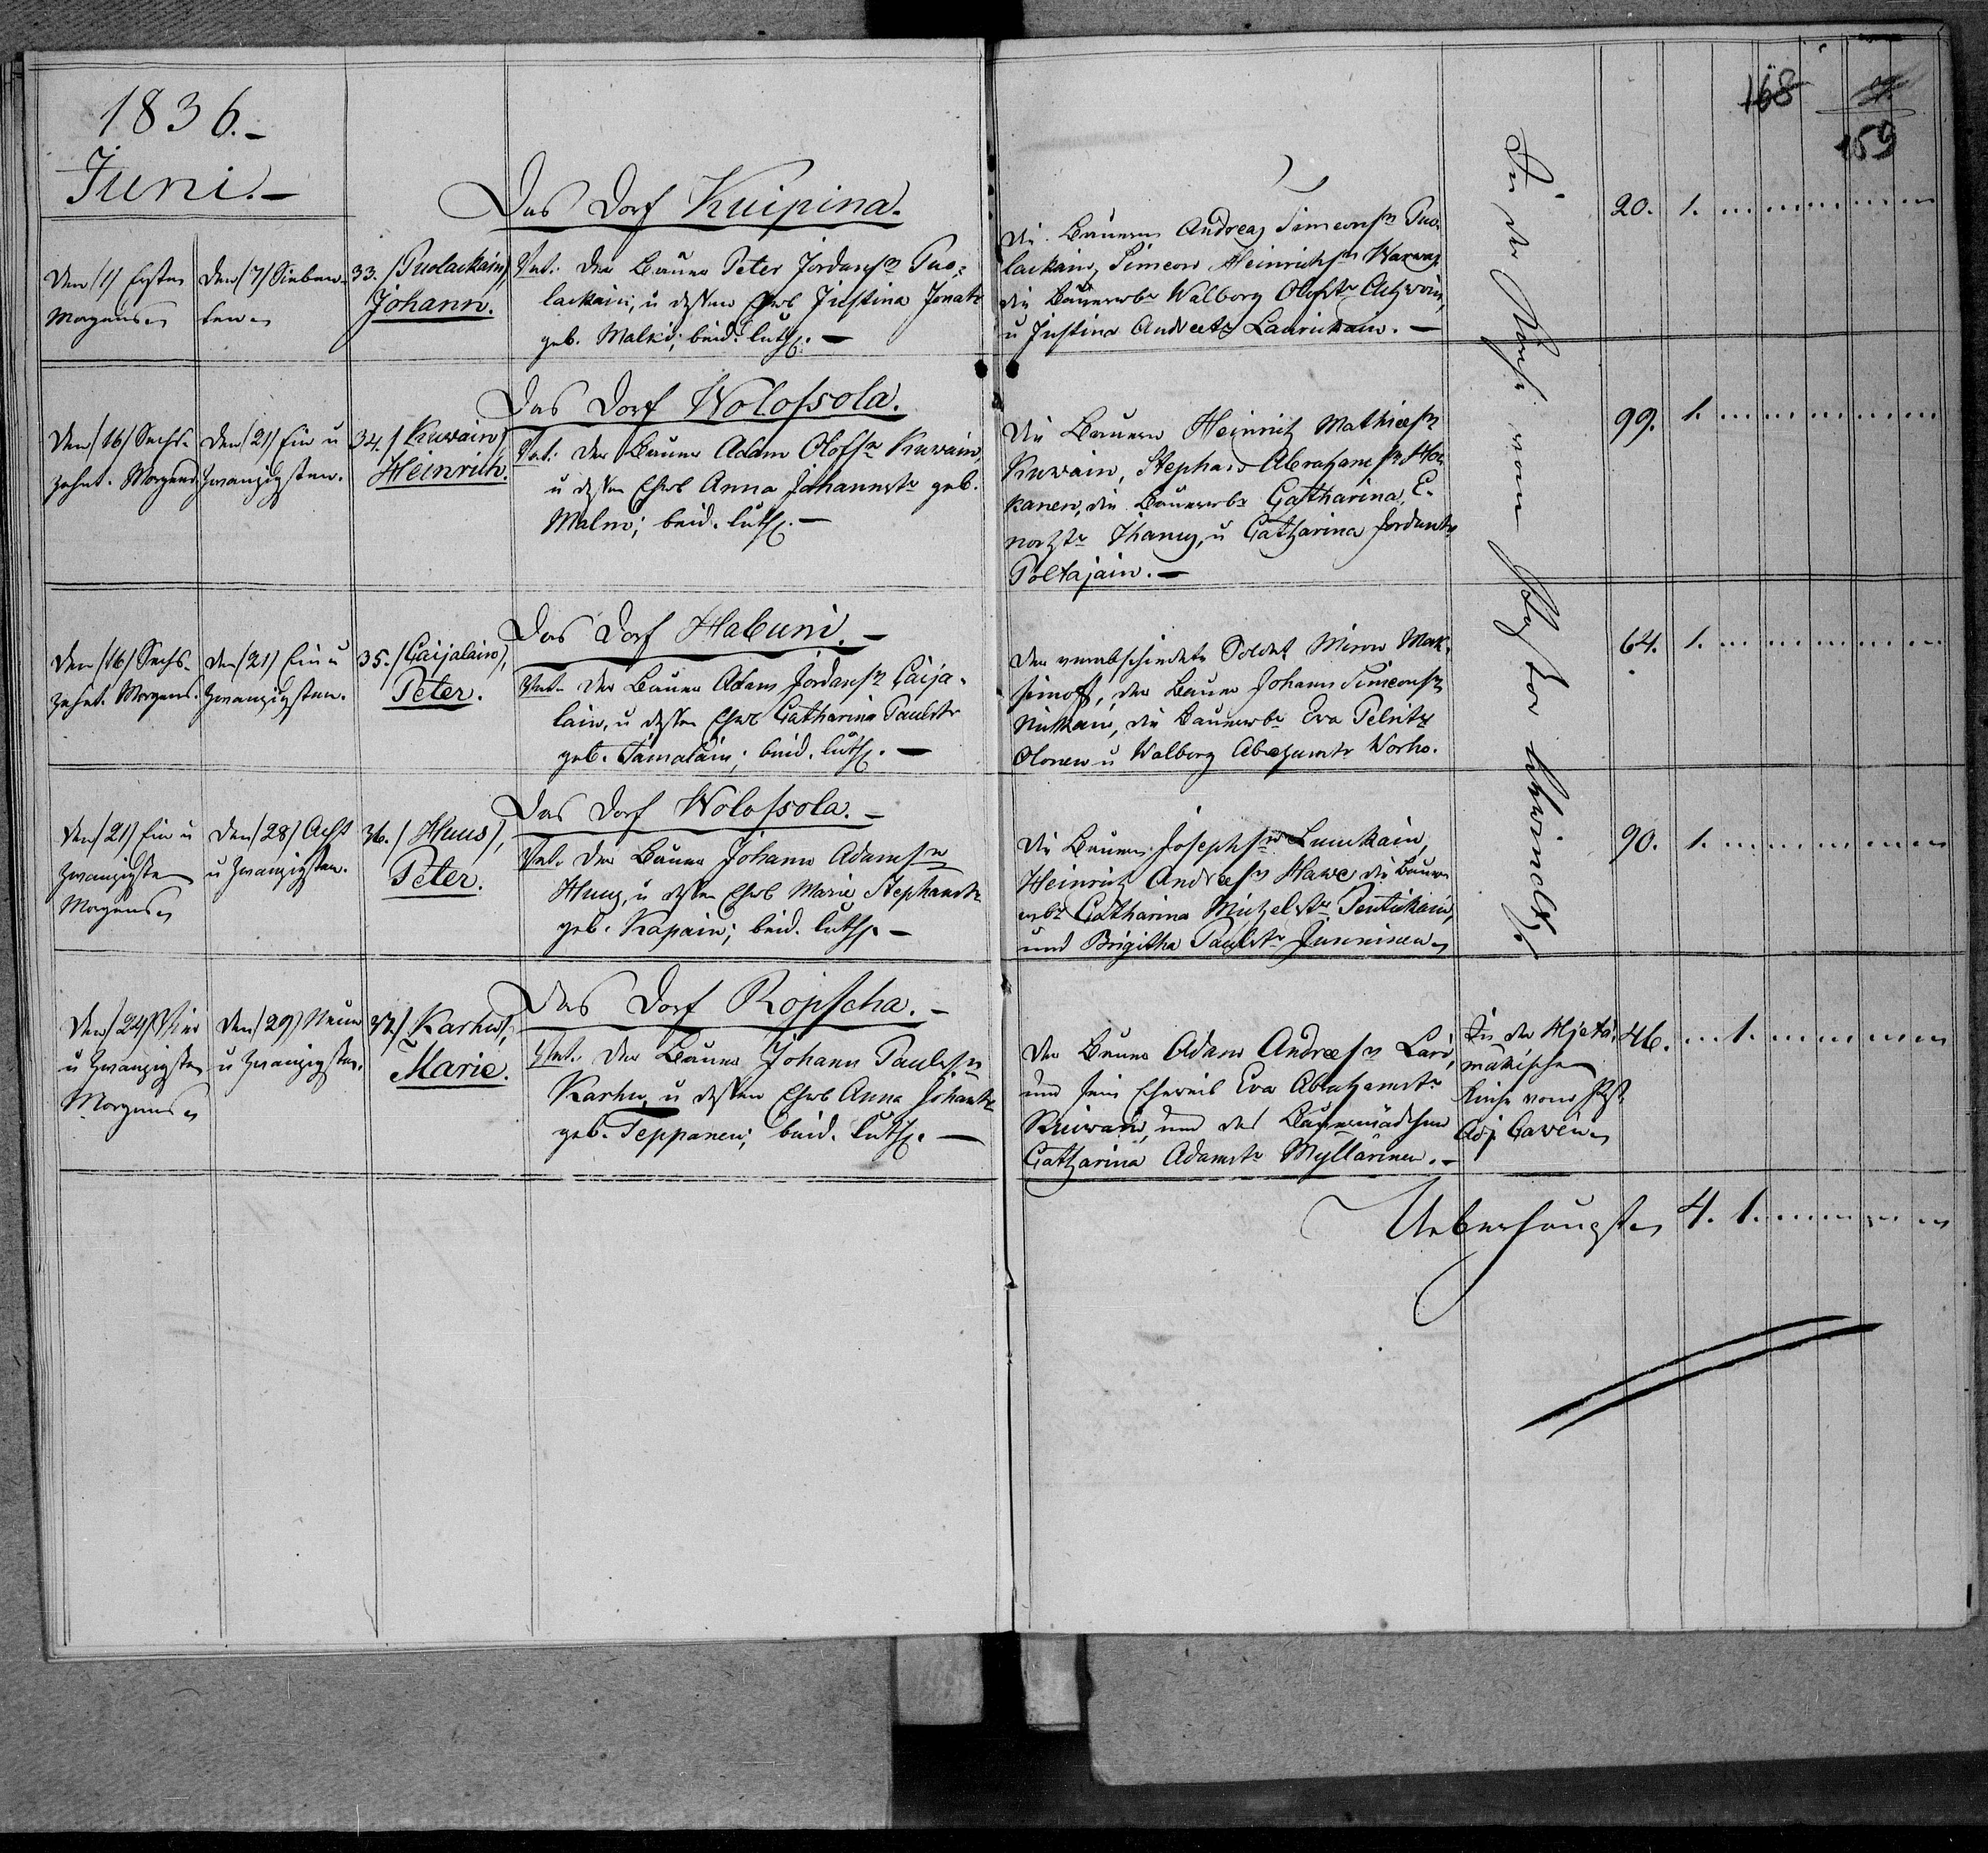 168
159
1836.-
Juni.-
Das Dorf Kuipina.
Den /1/ Ersten
Morgens
Den /7/ Sieben-
ten
33. /Puolackain/,
Johann.
Vat. Der Bauer Peter Jordansn Puo-
lackain, u dessen Ehwb Justina Jonatr
geb. Malki; beid. luth. -
Die Bauern Andreas Simeonsn Puo-
lackain, Simeon Heinrichsn Warwas
die Bauerwbr Walborg Olofstr
u Justina Andreetr Laurickain. -
20. 1.
Das Dorf Wolossola.
Den /16/ Sechs-
zehnt. Morgens
Den /21/ Ein u
Zwanzigsten.
34. /Kuwain/
Heinrich.
Vat. Der Bauer Adam Olofsn Kuwain,
u dessen Ehwb Anna Johannstr geb.
Malm; beid. luth. -
Die Bauern Heinrich Mathiessn
Kuwain, Stephan Abrahamsn Hou-
kanen, die Bauerwbr Catharina E-
nochstr Ihamus, u Catharina Jordantr
Poltajain. -
99. 1.
Das Dorf Habuni. -
Den /16/ Sechs-
zehnt. Morgens.
Den /21/ Ein u
Zwanzigsten.
35. /Caijalain/,
Peter.
Vat. Der Bauer Adam Jordansn Caija-
lain, u dessen Ehwb Catharina Paulstr
geb. Tamalain; beid. luth. -
Der verabschiedete Soldat Miron Mak-
simoff, der Bauer Johann Simeonsn
die Bauerwbr Eva
Olonen u Walborg Abrahamstr Worho.
64. 1.
Das Dorf Wolossola. -
Den /21/ Ein u
Zwanzigsten
Morgens
Den /28/ Acht
u Zwanzigsten.
36. /Huus/,
Peter.
Vat. Der Bauer Johann Adamsn
Huus, u dessen Ehwb Marie Stephanstr
geb. Kapain; beid. luth. -
Die Bauern Josephsn Lumkain,
Heinrich Andreesn Hawe die Bauer-
wbr Catharina Michelstr Pentikain,
und Brigitha Paulstr Junninen
90. 1.
Das Dorf Ropscha. -
Den /24/ Vier
u Zwanzigsten
Morgens
Den /29/ Neun
u Zwanzigsten.
37. /Karhu/,
Marie.
Vat. Der Bauer Johann Paulssn
Karhu, u dessen Ehwb Anna Johantr
geb. Teppanen; beid. luth. -
Der Bauer Adam Andreesn Lari,
und sein Eheweib Eva Abrahamstr
Kuiwain, und das Bauermädchen
Catharina Adamstr Myllärinen. -
In der Hjetä-
mäkischen
Kirche vom Past.
Adj. Caven
46. 1.
In der Kirche vom Past. Schwindt.
Ueberhaupt 4. 1.